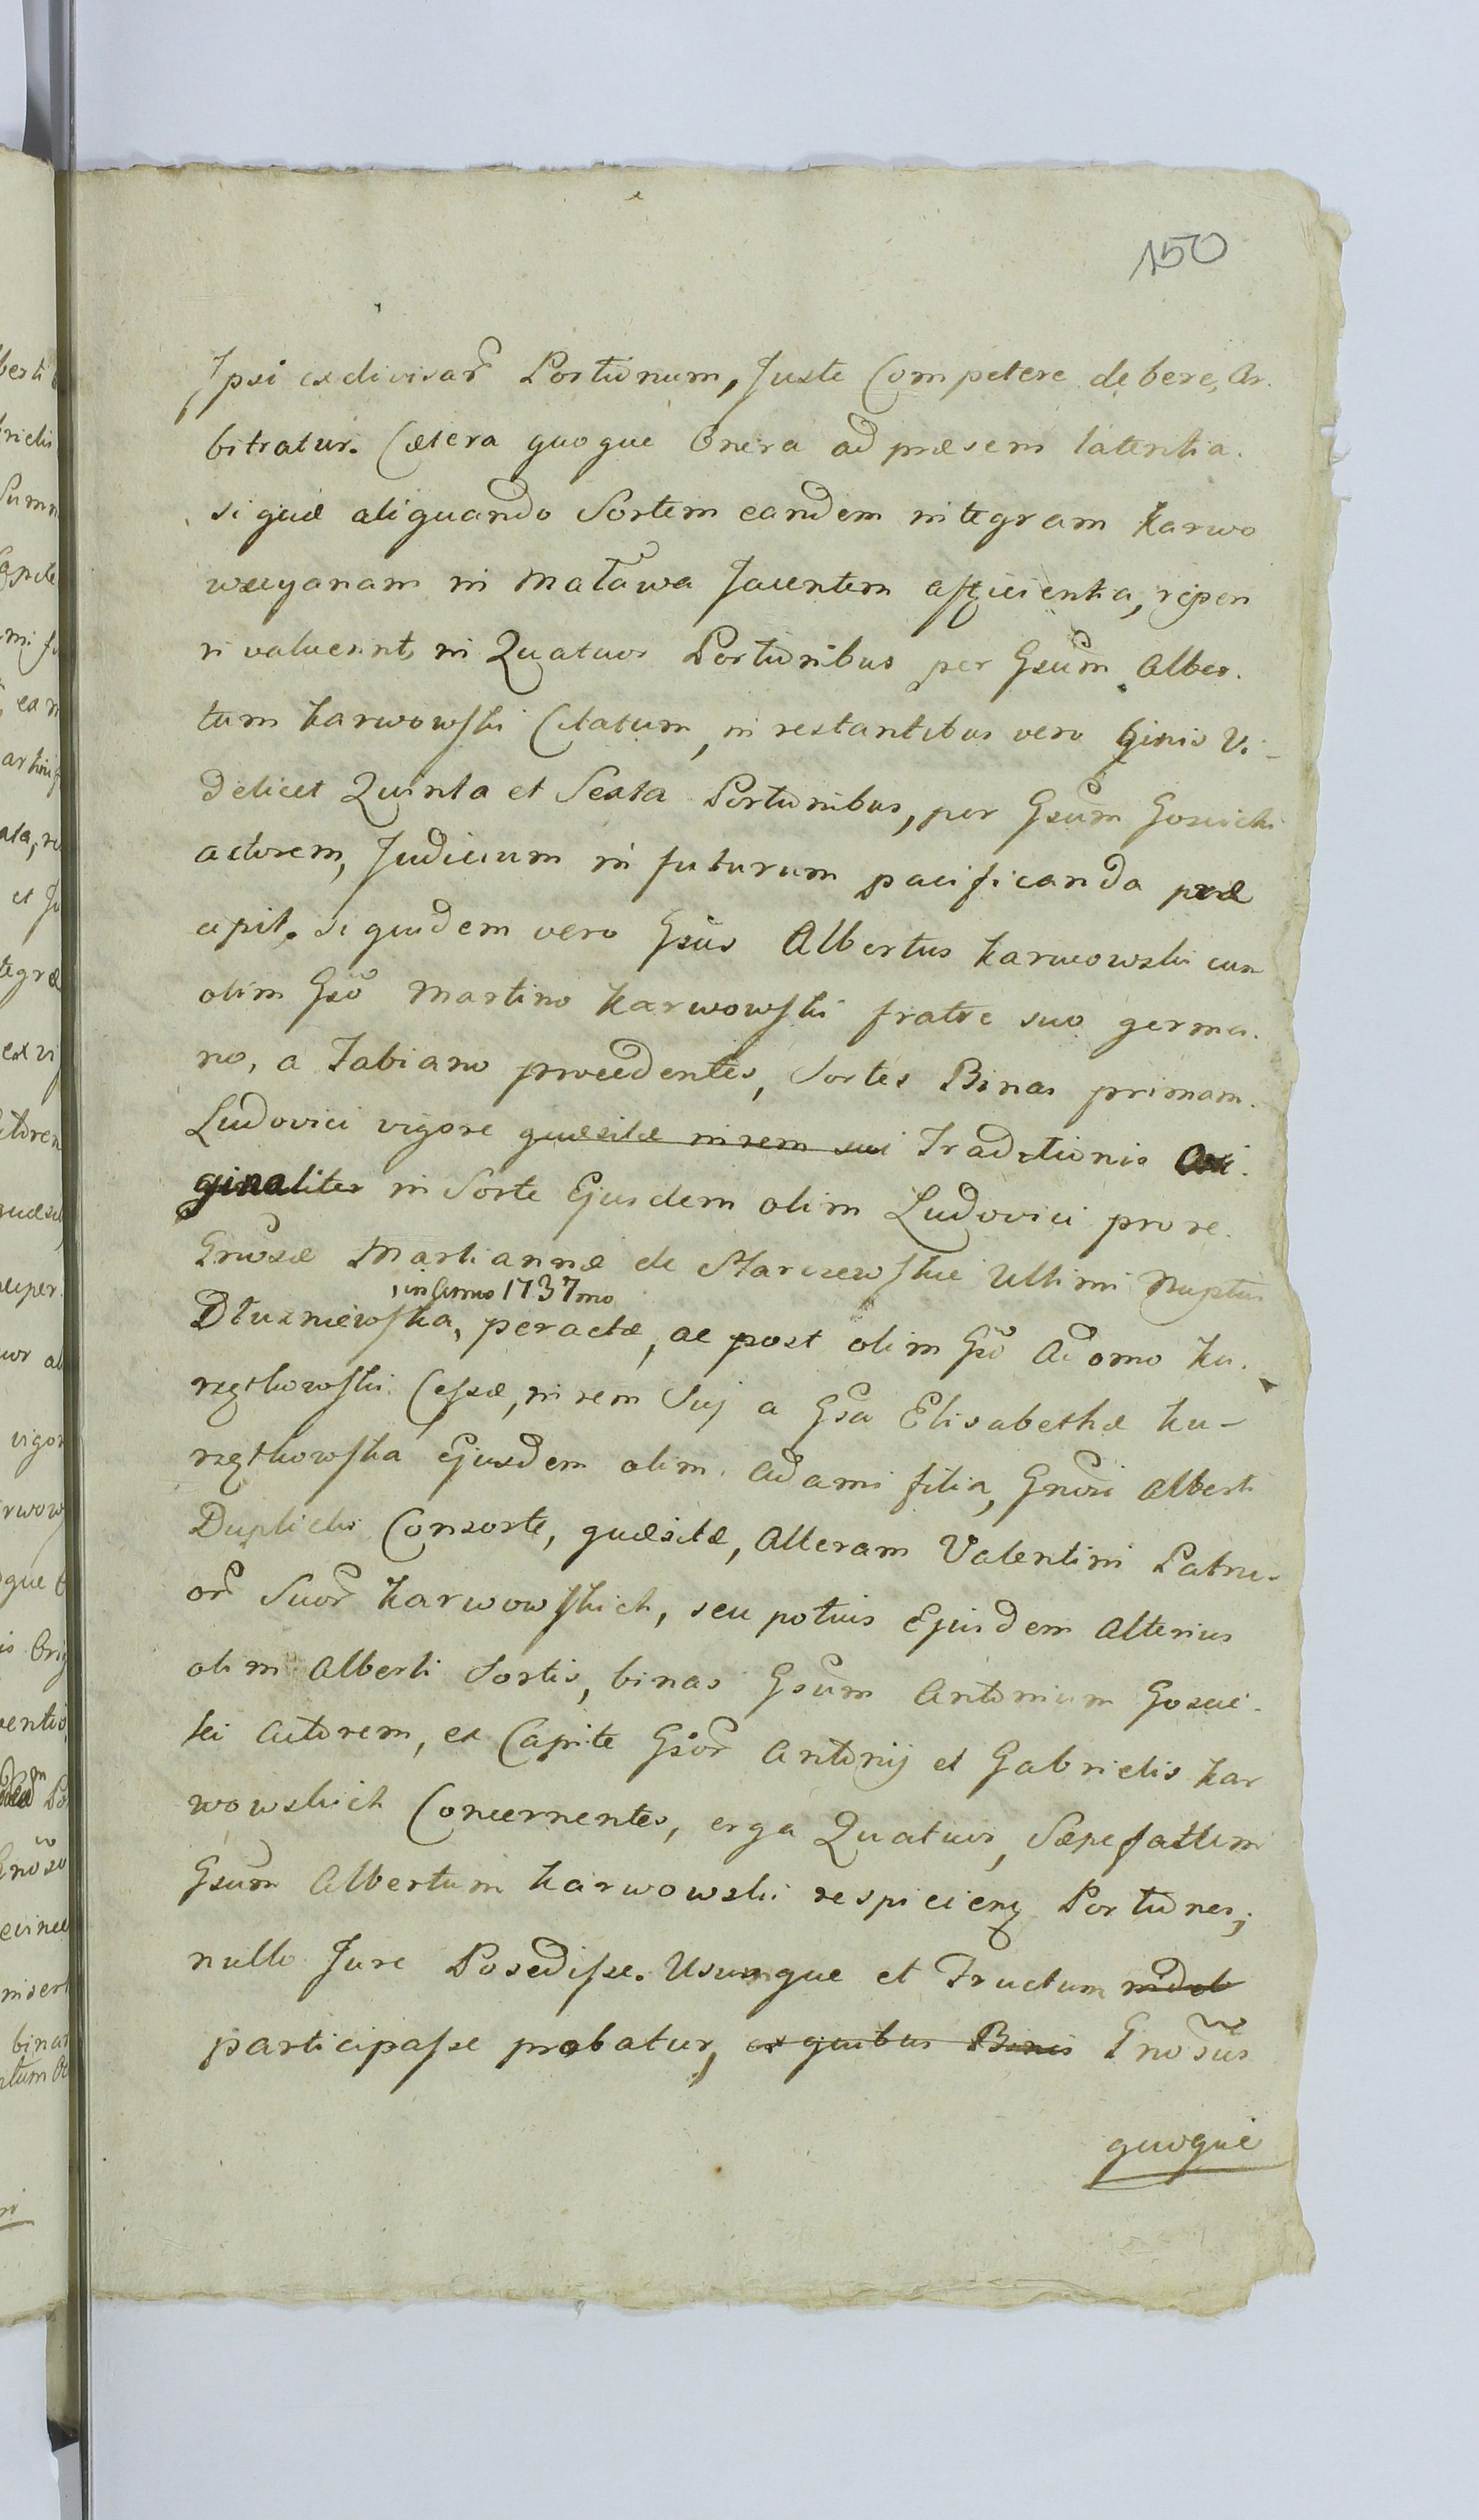 150
Ipsi exdivisar̃ Portionum, Juste Competere debere, Ar.
bitratur. Cætera quoque Onera ad præsens latentia.
si quæ aliquando Sortem eandem integram Karwo
wscyanam in Matawa Jacentem afficientia, reperi
ri valuerint, in Quatuor Portionibus per Gsum Alber.
tum Karwowski Citatum, in restantibus vero binis Vi-
delicet Quinta et Sexta Portionibus, per Gsum Gosicki
actorem, Judicium in futurum pacificanda præ
cipit. Siquidem vero Gsus Albertus Karwowski cum
olim Gso Martino Karwowski fratre suo germa.
no, a Fabiano procedentes, Sortes Binas primam.
Ludovici vigore quæsitæ in rem sui Traditionis Ori.
ginaliter in Sorte Ejusdem olim Ludovici pro re.
Gnosæ Martiannæ de Starczewskie Ultimi Nuptus
, in Anno 1737mo
Dłuzniewska, peractæ, ac post olim Gso Adamo Ku.
rzętkowski Cessæ, in rem Suj a Gsa Elisabethæ Ku-
rzętkowska Ejusdem olim Adami filia, Gnosi Alberti
Duplicki Consorte, quæsitæ, Alteram Valentini Patru-
or̃ Suor̃ Karwowskich, seu potius Ejusdem Alterius
olim Alberti Sortis, binas Gsum Antonium Gosic-
ki Actorem, ex Capite Gsor̃ Antonij et Gabrielis Kar
wowskich Concernentes, erga Quatuor, Sæpefattum
Gsum Albertum Karwowski respicien͠ Portiones;
nullo Jure Posedisse. Usumque et Fructum
participasse probatur, ex quibus Binis Gnosus
quoque